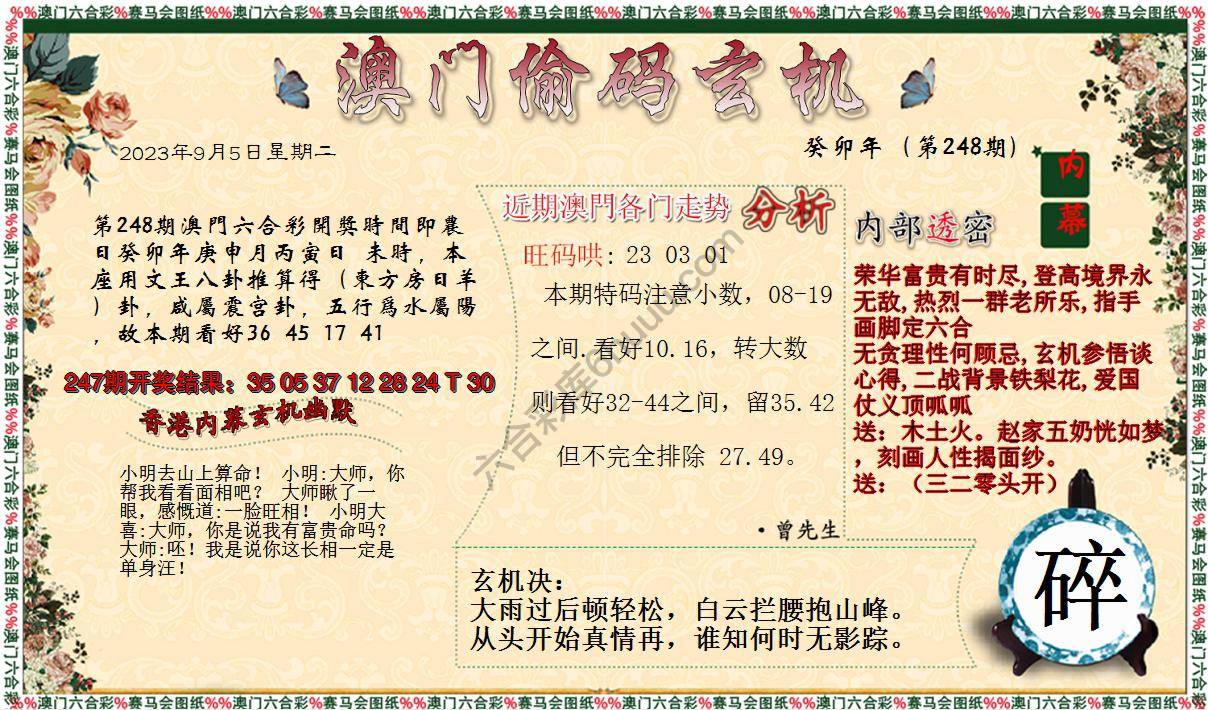 %%澳门六合彩%赛马会图纸%%澳门六合彩%赛马会图纸%%澳门六合彩%赛马会图纸%%澳门六合彩%赛马会图纸%%澳门六合彩%赛马会图纸%%澳门六合彩%赛马会图纸%%
澳门偷码玄机
2023年9月5日星期二
癸卯年（第248期）
内幕
第248期澳門六合彩開獎時間即農
日癸卯年庚申月丙寅日 未時，本
座用文王八卦推算得（東方房日羊
）卦，咸屬震宫卦，五行爲水屬陽
，故本期看好36 45 17 41
247期开奖结果：35 05 37 12 28 24 T 30
香港内幕玄机幽默
小明去山上算命！ 小明:大师，你
帮我看看面相吧？ 大师瞅了一
眼，感慨道:一脸旺相！ 小明大
喜:大师，你是说我有富贵命吗？
大师:呸！我是说你这长相一定是
单身汪！
近期澳門各门走势 分析
旺码哄: 23 03 01
本期特码注意小数，08-19
之间.看好10.16，转大数
则看好32-44之间，留35.42
但不完全排除 27.49。
·曾先生
内部透密
荣华富贵有时尽,登高境界永
无敌,热烈一群老所乐,指手
画脚定六合
无贪理性何顾忌,玄机参悟谈
心得,二战背景铁梨花,爱国
仗义顶呱呱
送：木土火。赵家五奶恍如梦
，刻画人性揭面纱。
送：（三二零头开）
玄机决：
大雨过后顿轻松，白云拦腰抱山峰。
从头开始真情再，谁知何时无影踪。
碎